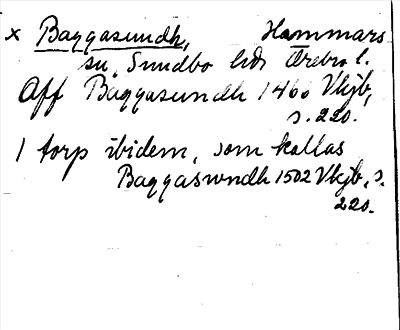 x Baggasundh, Hammars
sn, Sundbo hd, Örebro l.
Aff Baggasundh 1466 Vkjb,
s. 220.
1 torp ibidem, som kallas
Baggaswndh 1502 Vkjb, s.
220.